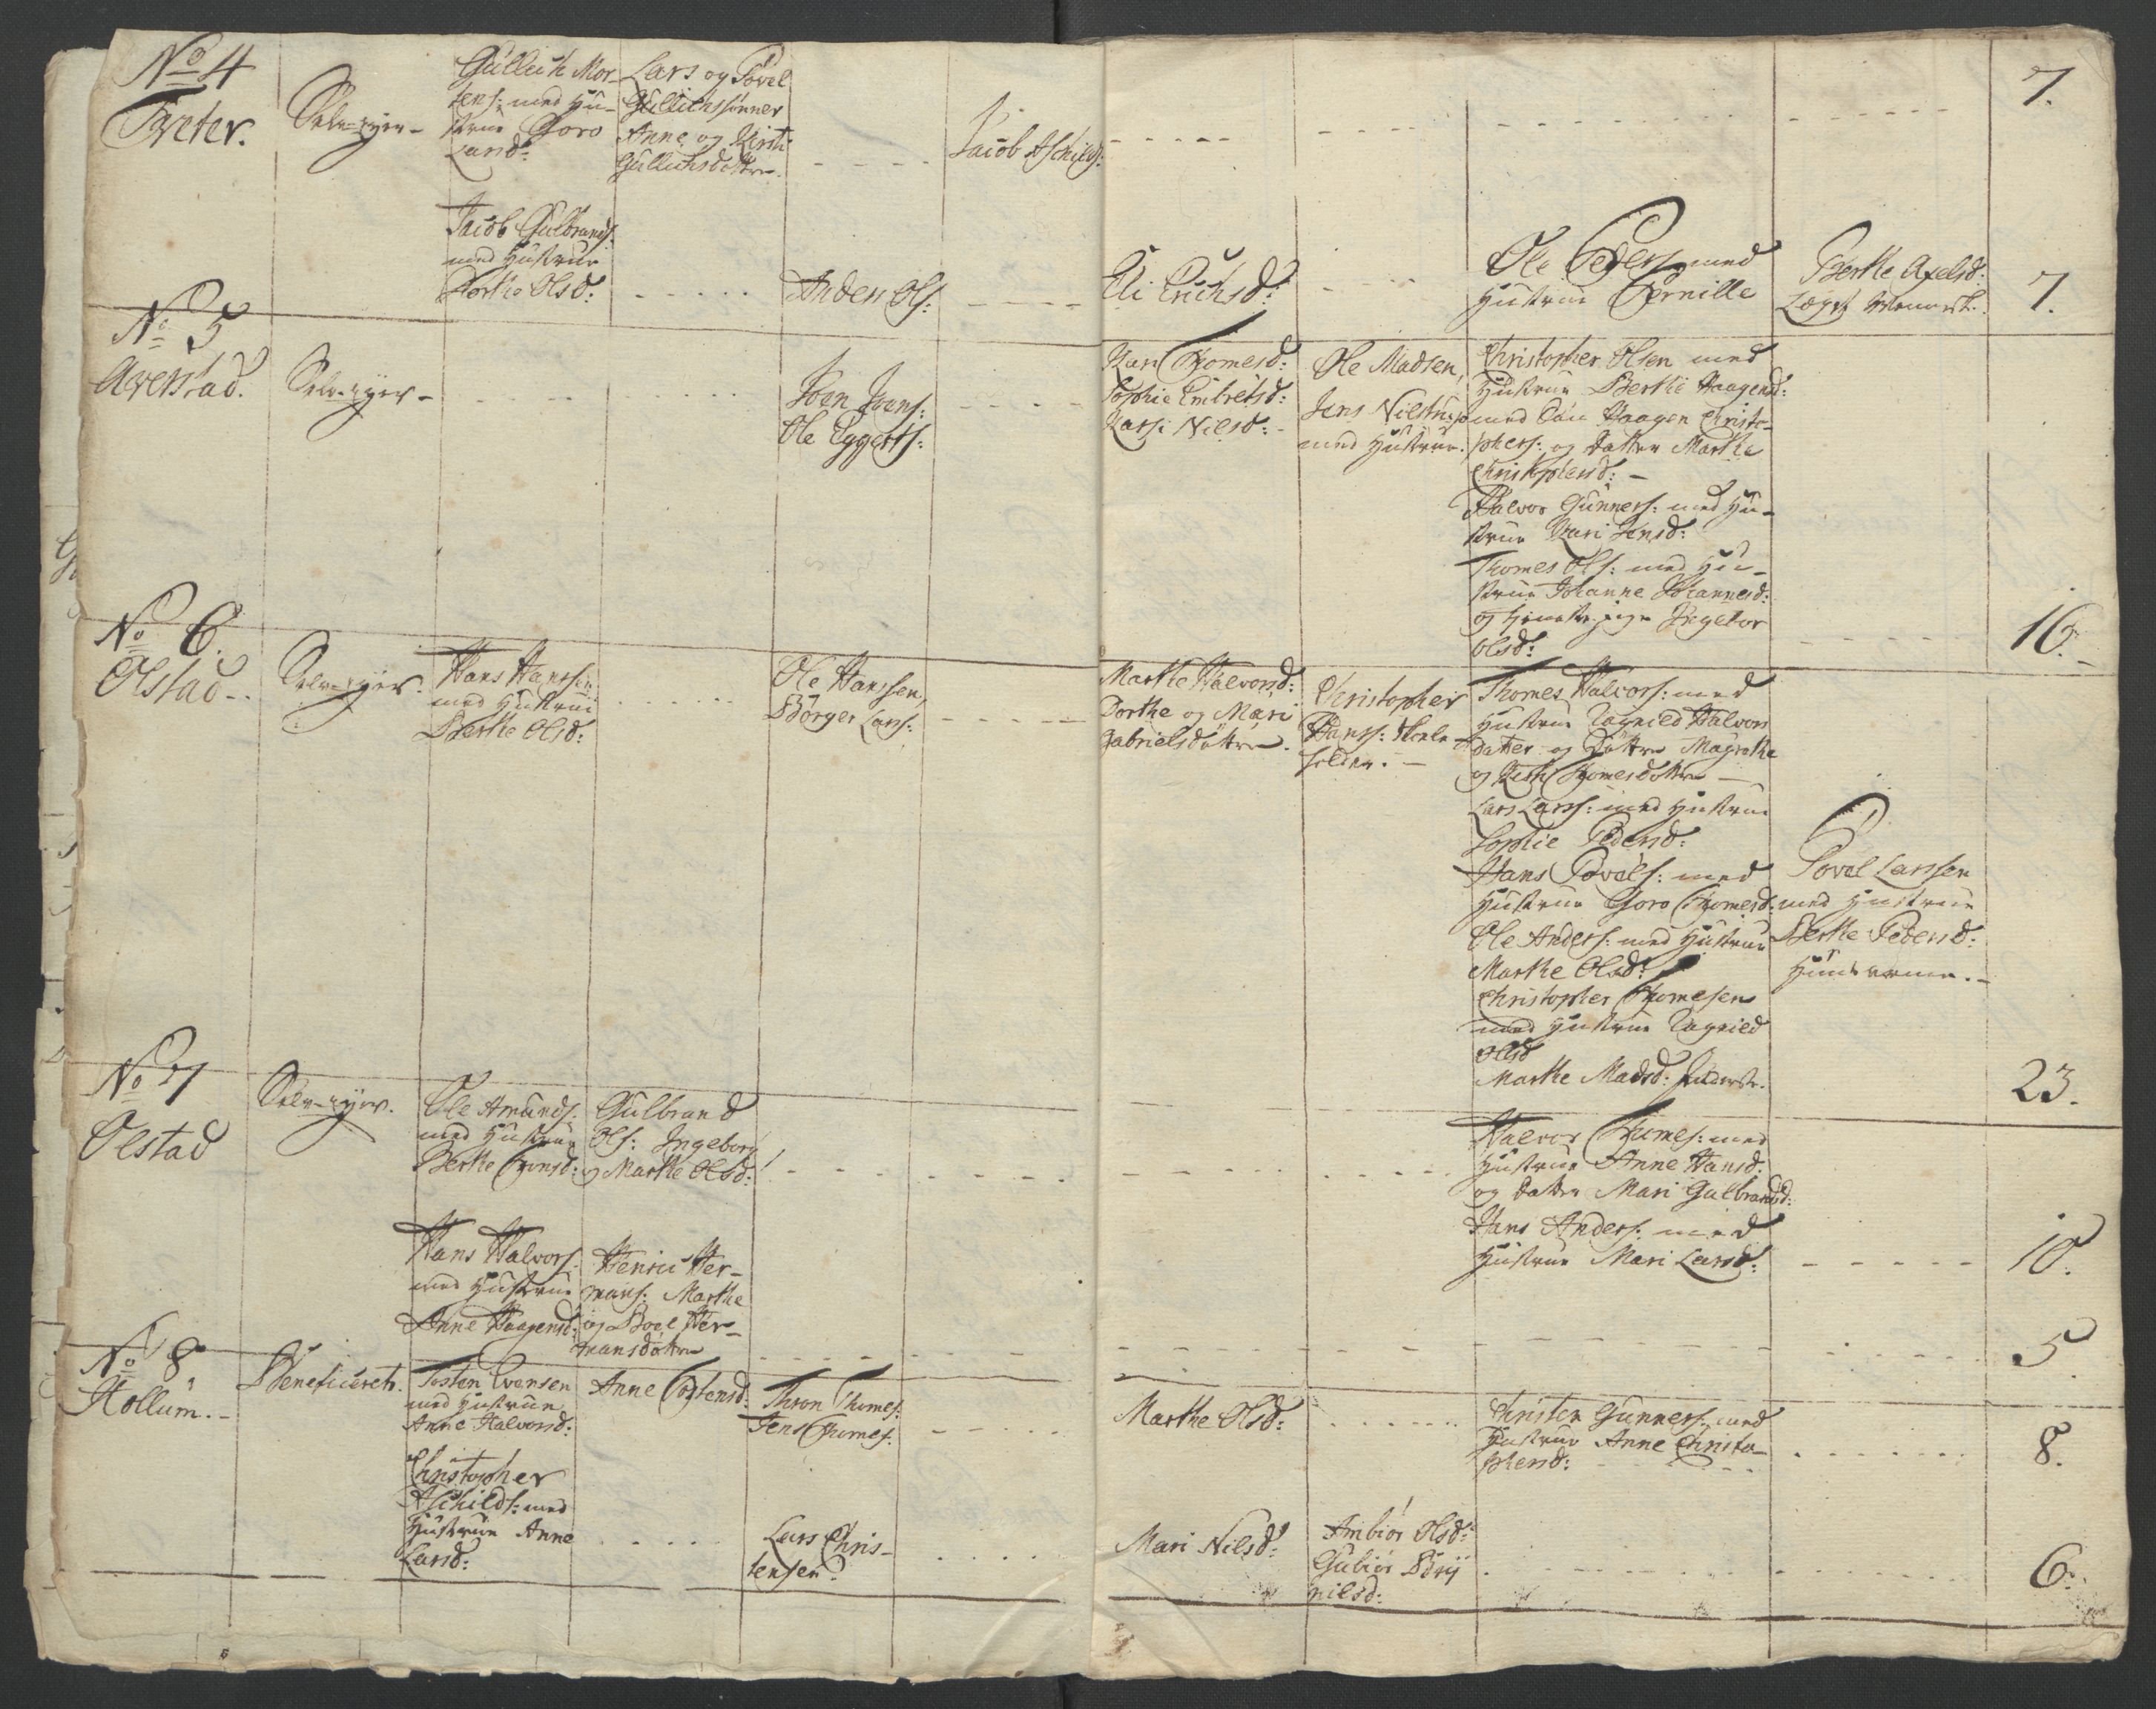 No 4
Tveter.
Selv-eyer -
Gullich Mor-
tens: med Hu-
strue Goro
Larsd:
Lars og Povel
Gullichssønner
Anne og Kirsti
Gullichsdøttre.
Jacob Aschilds:
7.
Jacob Gulbrands:
med Hustrue
Dorthe Olsd:
Anders Ols:
Eli Erichsd:
Ole Peders: med
Hustrue Pernille
Berthe Axelsd:
Lægd
7.
No 5
Averstad.
Selv-eyer -
Joen Joens:
Ole Eggerts:
Kari Thomesd:
Sophie Embretsd:
Karj Nilsd: -
Ole Madsen,
Jens
med Hustrue.
Christopher Olsen med
Hustrue Berthe Haagensd:
med Søn Haagen Christo-
phers: og Datter Marthe
Christophersd: -
Halvor Gunners: med Hu-
strue Kari Jensd:
Thomes Ols: med Hu-
strue Johanne Johannesd:
og tienstepige Ingebor
Olsd:
16. -
No 6.
Olstad -.
Selv-eyer.
Hans Hanssen
med Hustrue
Berthe Olsd:
Ole Hanssen,
Børger Lars:
Marthe Halvorsd:
Dorthe og Mari
Gabrielsdøttre.
Christopher
Hanss: Skole-
holder. -
Thomes Halvors: med
Hustrue Ragnild Halvors
datter og Døttre Magrethe
og Kirsti Thomesdøttre -
Lars Larss: med Hustrue
Sophie Pedersd:
Hans Povels: med
Hustrue Goro Thomesd:
Ole Anders: med Hustrue
Marthe Olsd:
Christopher Thomesen
med Hustrue Ragnild
Olsd
Marthe Madsd: Inderste.
Povel Larssen
med Hustrue
Berthe Pedersd:
Huusarme. -
23.
No 7
Olstad
Selv-eyer.
Ole Amunds:
med Hustrue
Berthe Evensd:
Gulbrand
Ols: Ingeborg
og Marthe Olsd:
Halvor Thomes: med
Hustrue Anne Hansd:
og Datter Mari Gulbrandsd:
Hans Anders: med
Hustrue Mari Larsd:
10.
Hans Halvors:
med Hustrue
Anne Haagensd:
Henric Her-
mans: Marthe
og Boel Her-
mansdøttre
5.
No 8.
Hollum. -
Beneficeret.
Tosten Evensen
med Hustrue
Anne Halvorsd:
Anne Tostensd:
Thron Thomes:
Jens Thomes:
Marthe Olsd:
Christen Gunners: med
Hustrue Anne Christo-
phersd:
8.
Christopher
Aschilds: med
Hustrue Anne
Larsd:
Lars Chris-
tensen.
Mari Nilsd:
Ambiør Olsd:
Gubiør
nilsd:
6.